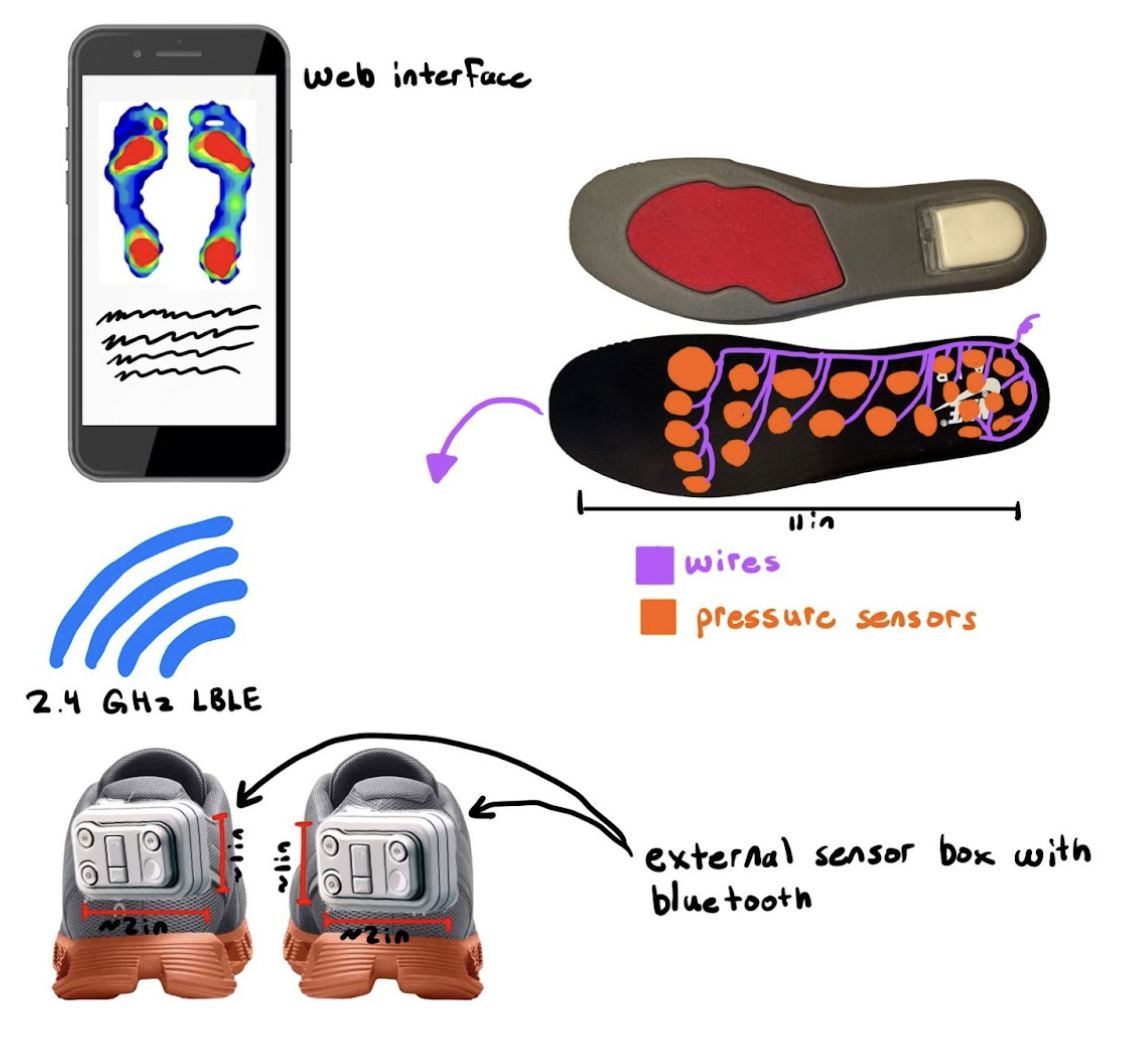 web interface
11in
wires
pressure sensors
2.4 GHz LBLE
~1in
~1in
~2in
~2in
external sensor box with
bluetooth